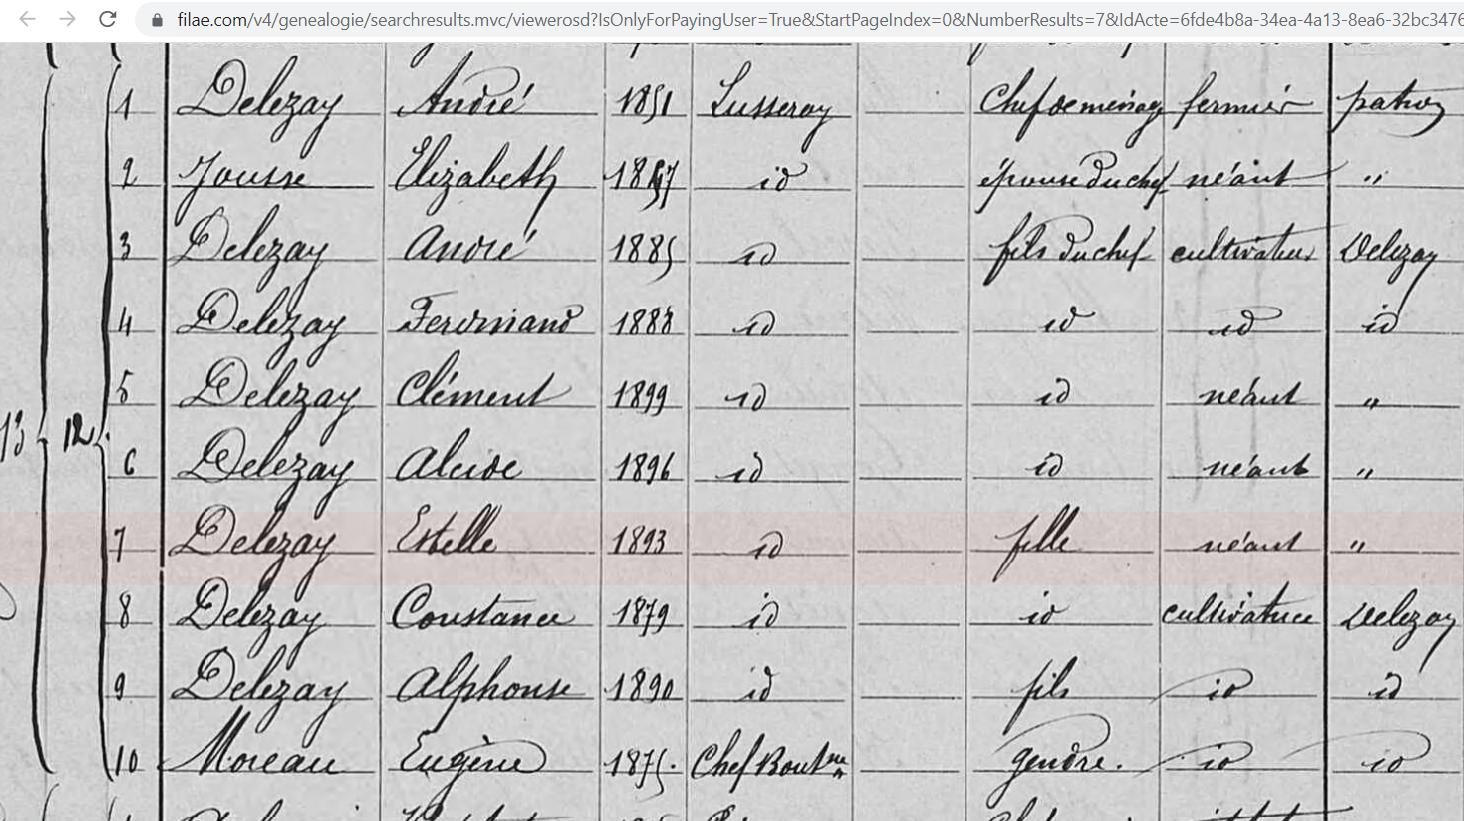 filae.com/v4/genealogie/searchresults.mvc/viewerosd?IsOnlyForPayingUser=True&StartPageIndex=0&NumberResults=7&IdActe=6fde4b8a-34ea-4a13-8ea6-32bc3476
1 Delezay André 1851 Lusseray Chef de ménage fermier patron
2 Jousse Elizabeth 1857 id épouse du chef néant "
3 Delezay André 1885 id fils du chef cultivateur Delezay
4 Delezay Ferdinand 1888 id id id id
5 Delezay Clément 1899 id id néant "
13 12 6 Delezay Alcide 1896 id id néant "
7 Delezay Estelle 1893 id fille néant "
8 Delezay Constance 1879 id id cultivatrice Delezay
9 Delezay Alphonse 1890 id fils id id
10 Moreau Eugène 1875. Chef Boutne gendre. id id